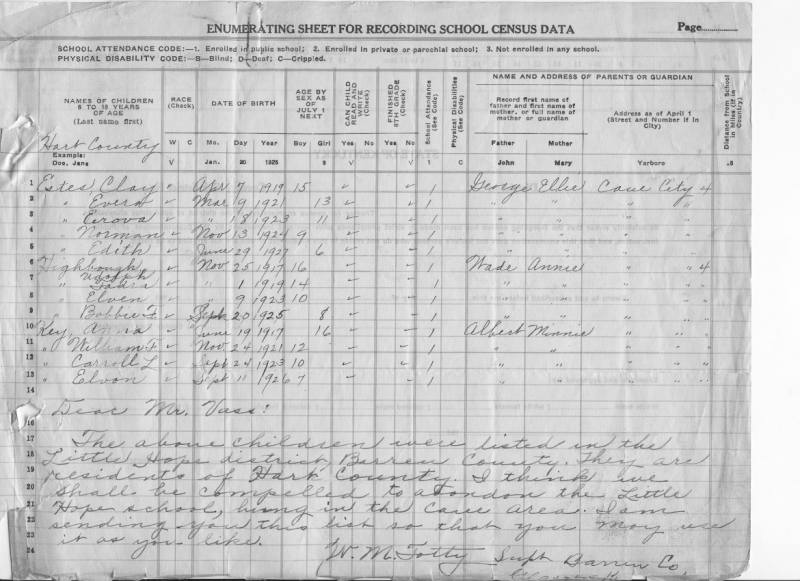 ENUMERATING SHEET FOR RECORDING SCHOOL CENSUS DATA Page
SCHOOL ATTENDANCE CODE:—1. Enrolled in public school; 2. Enrolled in private or parochial school; 3. Not enrolled in any school.
PHYSICAL DISABILITY CODE:—B—Blind; D—Deaf; C—Crippled.
NAMES OF CHILDREN 6 TO 18 YEARS OF AGE (Last name first)
RACE (Check)
DATE OF BIRTH
AGE BY SEX AS OF JULY 1 NEXT
CAN CHILD READ AND WRITE (Check)
FINISHED 8TH GRADE (Check)
School Attendance (See Code)
Physical Disabilities (See Code)
NAME AND ADDRESS OF PARENTS OR GUARDIAN
Record first name of father and first name of mother, or full name of mother or guardian
Address as of April 1 (Street and Number if in City)
Distance from School in Miles (if in Country).
Hart County W C Mo. Day Year Boy Girl Yes No Yes No Father Mother
Example: Doe, Jane V Jan. 20 1925 8 V V 1 C John Mary Yarboro .8
1 Estes Clay ✓ Apr 7 1919 15 ✓ ✓ 1 George Ellie Cave City 4
2 " Evera ✓ Mar 9 1921 13 ✓ ✓ 1 " " "
3 " Erova ✓ " 18 1923 11 ✓ ✓ 1 " " "
4 " Norman ✓ Nov 13 1924 9 ✓ ✓ 1 " " "
5 " Edith ✓ June 29 1927 6 ✓ ✓ 1 " " "
6 Highbaugh, ✓ Nov 25 1917 16 ✓ ✓ 1 Wade Annie " " 4
7 " ✓ " 1 1919 14 ✓ ✓ 1 " " " "
8 " Elven ✓ " 9 1923 10 ✓ ✓ 1 " " " "
9 " Bobbie F ✓ Sept 20 1925 8 ✓ ✓ 1 " " " "
10 Key, Anna ✓ June 19 1917 16 ✓ ✓ 1 Albert Minnie " " "
11 " William F ✓ Nov 24 1921 12 ✓ ✓ 1 " " " "
12 " Carroll L ✓ Sept 24 1923 10 ✓ ✓ 1 " " " "
13 " Elvon ✓ Sept 11 1926 7 ✓ ✓ 1 " " " "
14
Dear Mr. Vass:
16
17 The above children were listed in the
18 Little Hope district Barren County. They are
19 residents of Hart County. I think we
20 shall be compelled to abondon the Little
21 Hope school, being in the Cave Area. I am
22 sending you this list so that you may use
23 it as you like.
24 W. M. Totty Supt Barren Co,